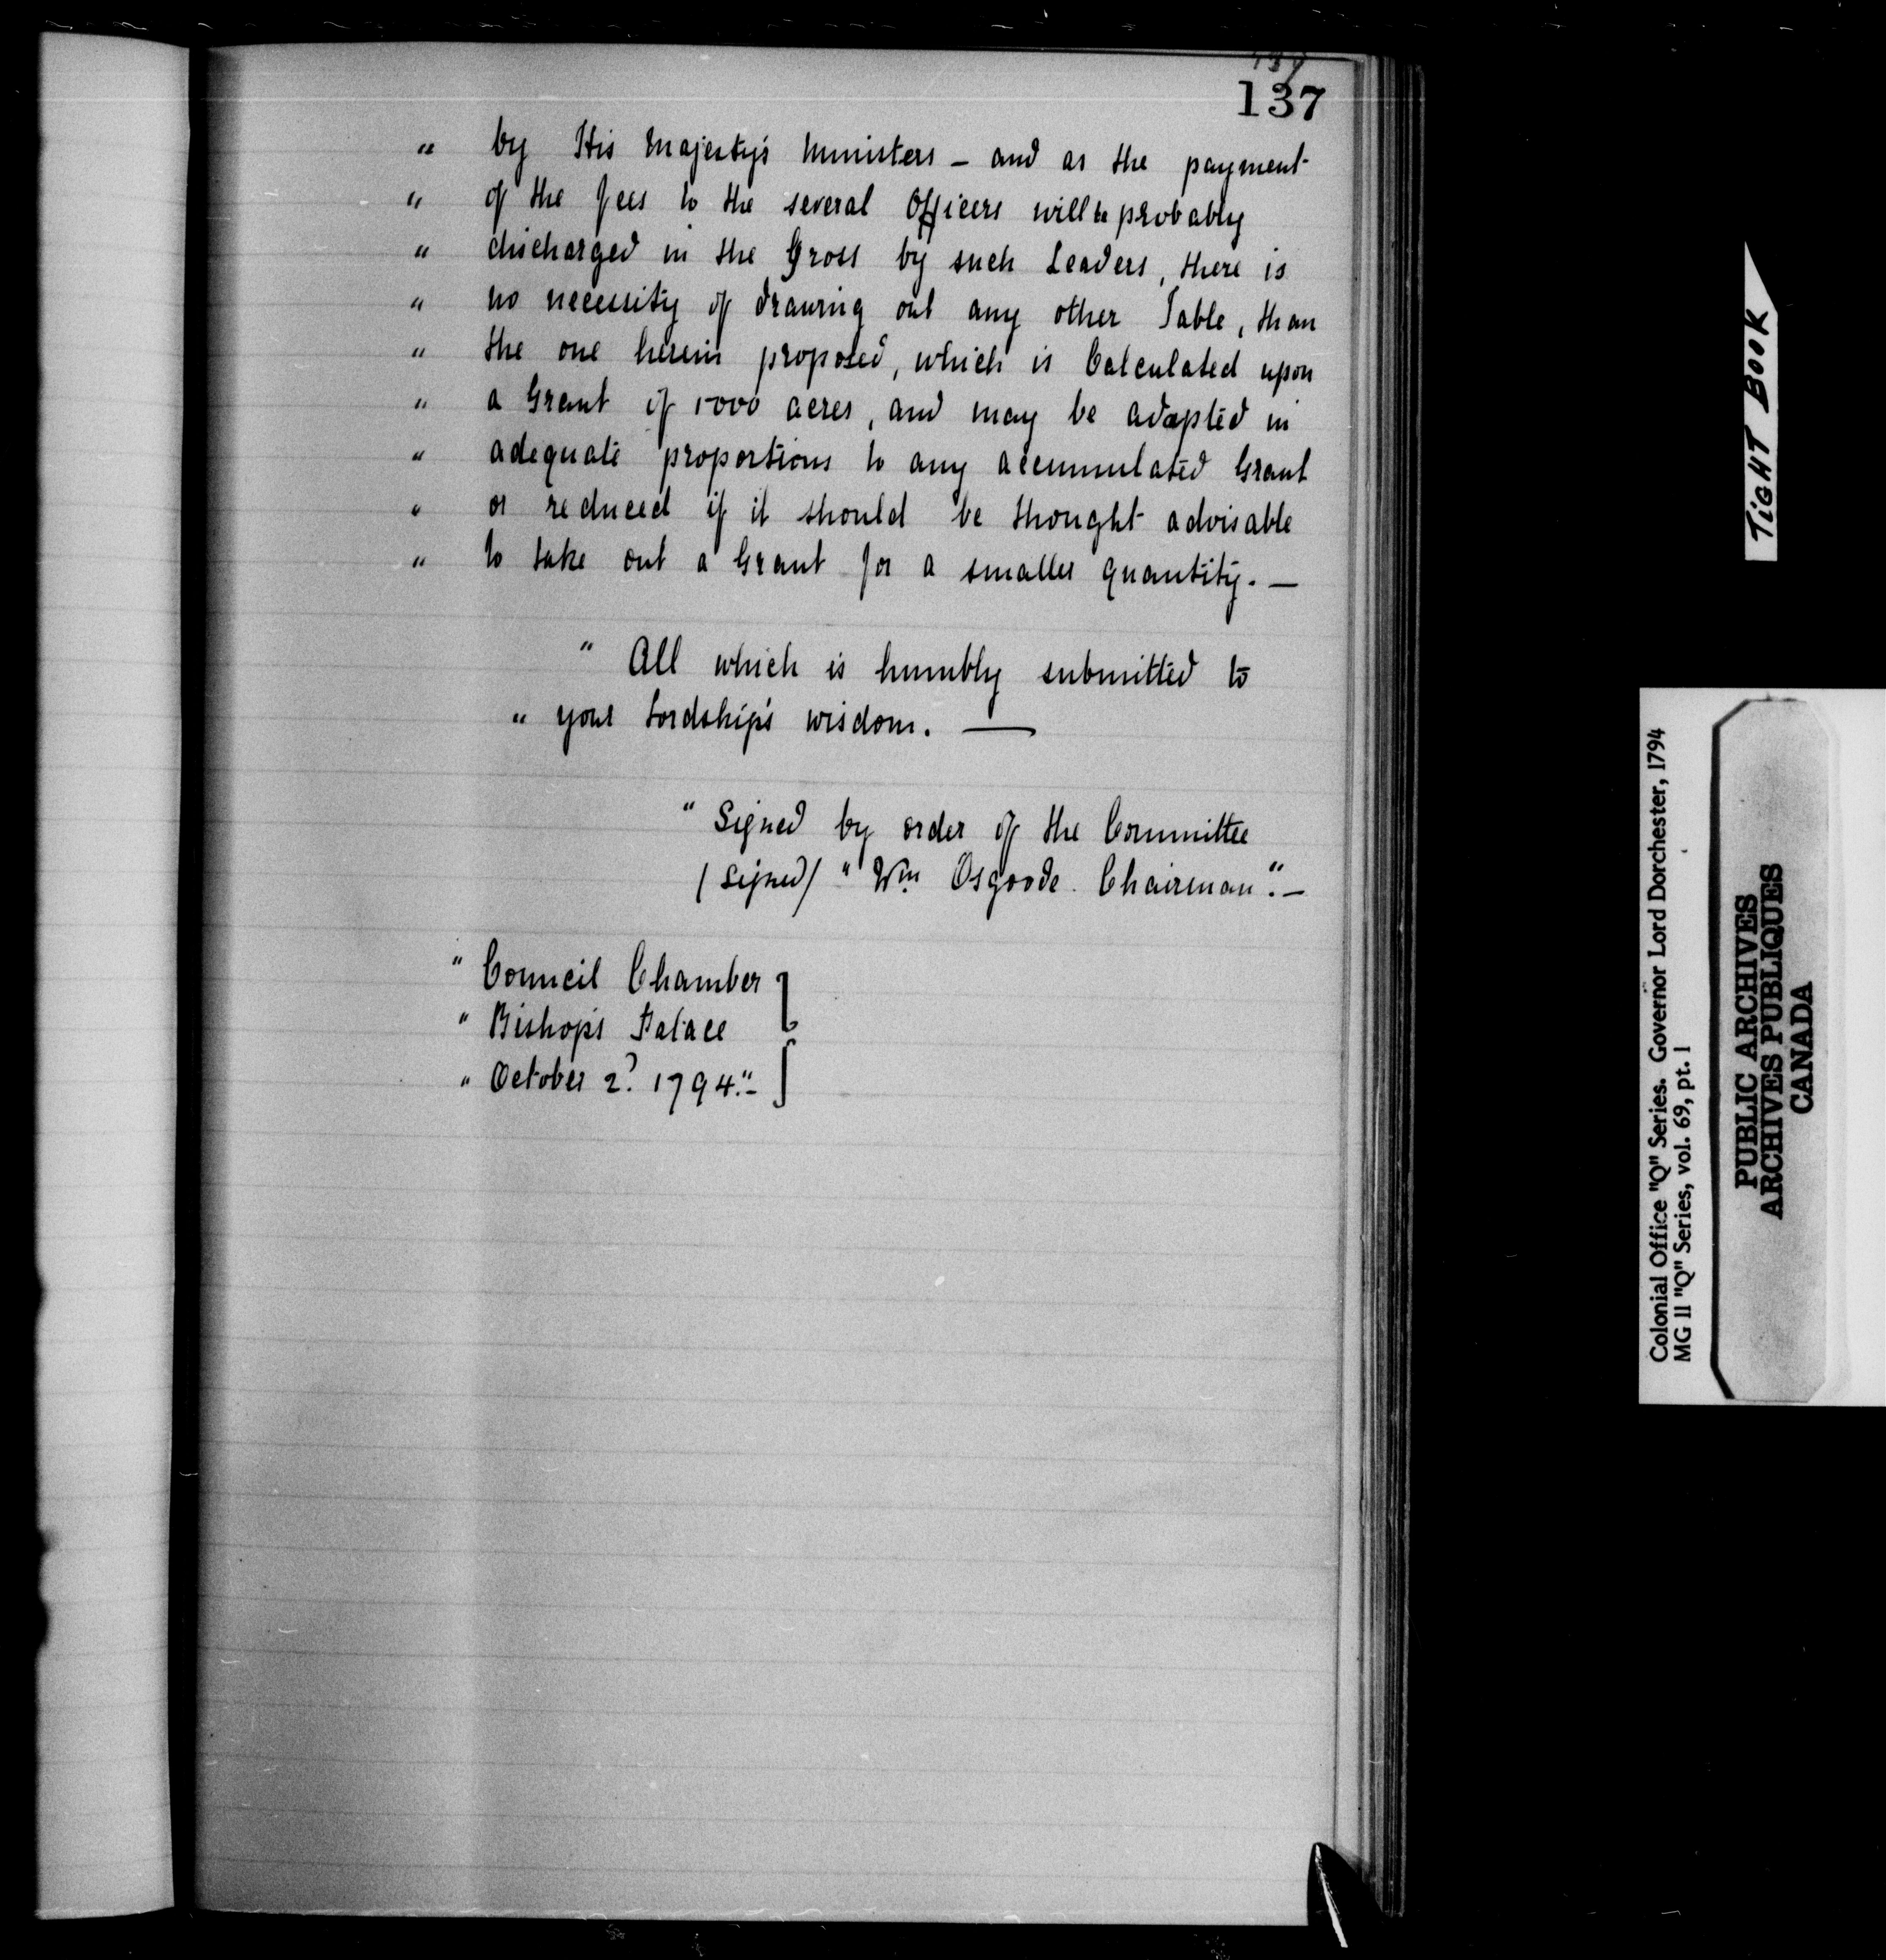 137
" by His Majesty's Ministers – and as the payment
" of the fees to the several Officers will be probably
" discharged in the Gross by such Leaders, there is
" no necessity of drawing out any other Table, than
" the one herein proposed, which is Calculated upon
" a Grant of 1000 acres, and may be adapted in
" adequate proportions to any accumulated Grant
" or reduced if it should be thought advisable
" to take out a Grant for a smaller quantity. —
" All which is humbly submitted to
" your Lordship's wisdom. —
" Signed by order of the Committee
(signed) " Wm Osgoode Chairman". –
" Council Chamber
" Bishop's Palace
" October 2d 1794." –
TIGHT BOOK
Colonial Office "Q" Series. Governor Lord Dorchester, 1794
MG 11 "Q" Series, vol. 69, pt. 1
PUBLIC ARCHIVES
ARCHIVES PUBLIQUES
CANADA